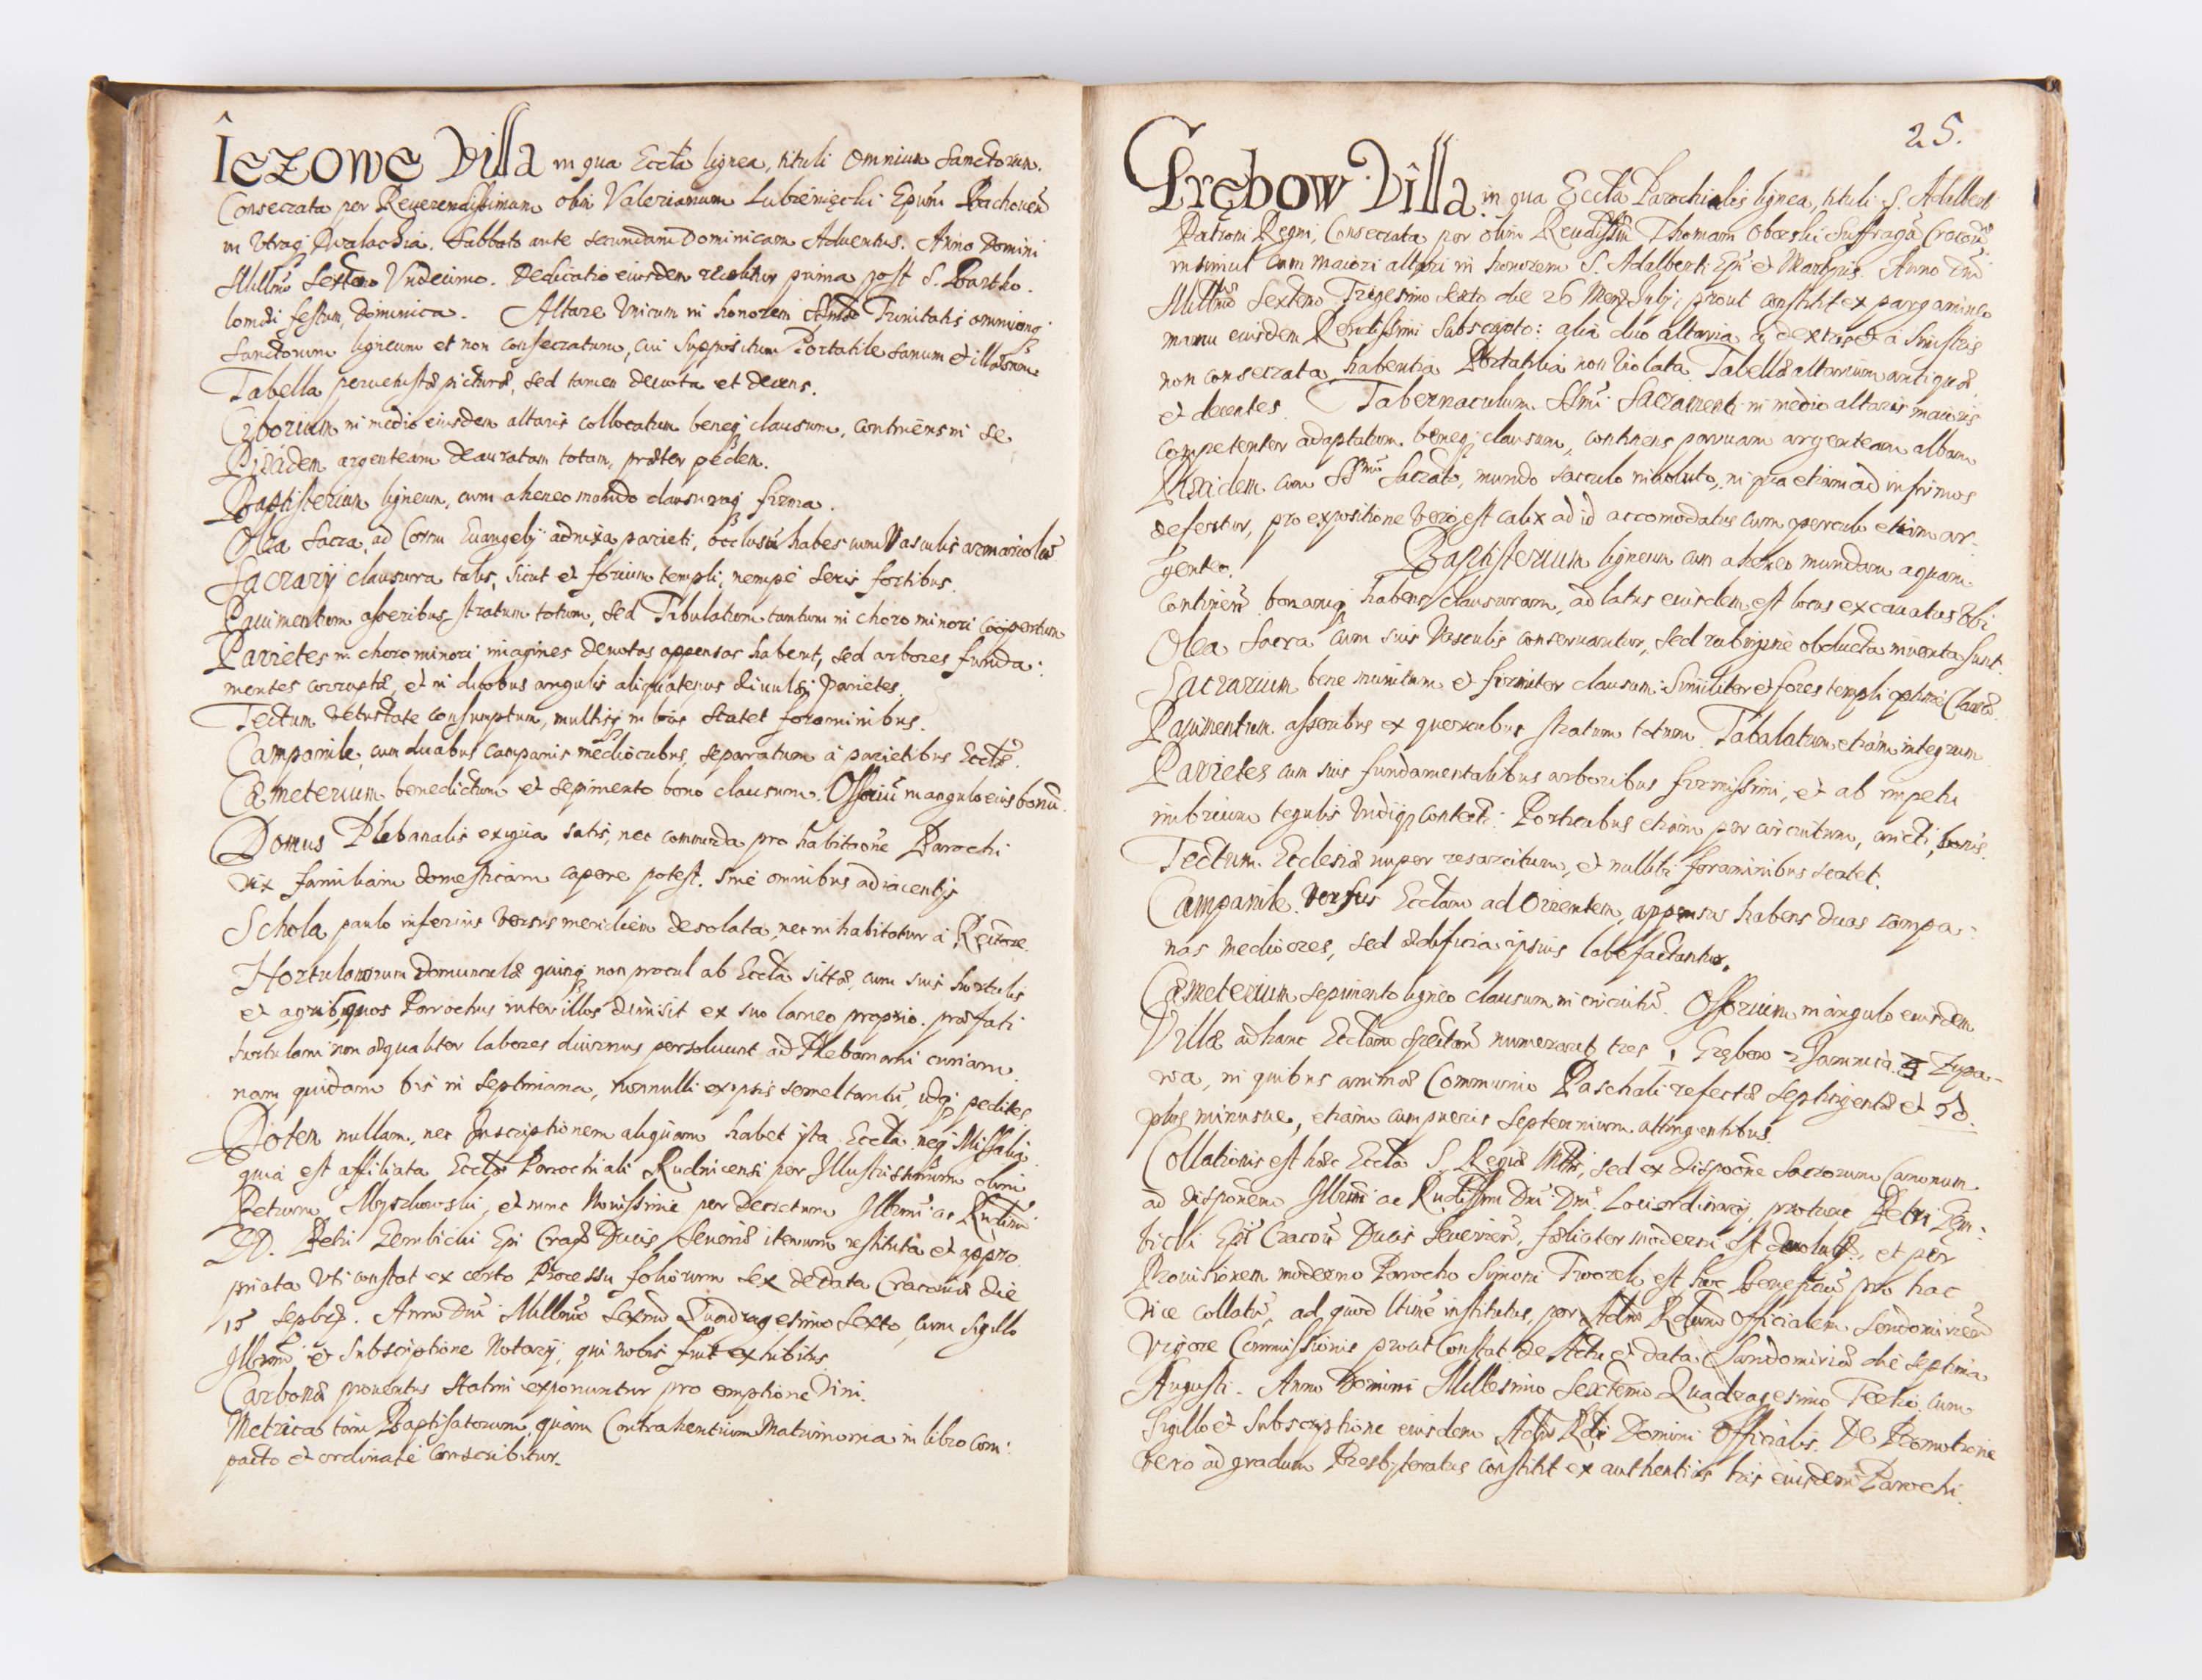 Iezowe Villa in qua Eccła lignea, tituli Omnium Sanctorum.
Consecrata per Reuerendissimum olim Valerianum Lubieniecki Epum Bachouień
in Utraq Walachia. Sabbato ante secundam Dominicam Aduentus. Anno Domini
Millmo Sexcno Undecimo. Dedicatio eiusdem prima post S. Bartho.
lomei festum, Dominica. Altare Unicum in honorem Trinitatis omniumq
Sanctorum ligneum et non consecratum, cui suppositum Portatile sanum et
Tabella peruetustæ picturæ, sed tamen deuota et decens.
Ciborium in medio eiusdem altaris collocatum beneq clausum, continens in se
Pixidem argenteam deauratam totam, præter pedem.
Baptisterium ligneum, cum aheneo mundo clausuraq firma.
Olea Sacra, ad Cornu Euangelij adnixa parieti, habes cum Vasculis
Sacrarij clausura talis, sicut et forium templi, nempe seris fortibus.
Pauimentum asseribus stratum totum, sed Tabulatum tantum in choro minori coopertum
Parietes in choro minori imagines deuotas appensas habent, sed arbores funda:
mentes corruptæ, et in duobus angulis aliquatenus diuulsi Parietes.
Tectum Vetustate consumptum, multisq in locis scatet foraminibus.
Campanile, cum duabus campanis mediocribus, separatum à parietibus Eccłæ.
Cæmeterium benedictum et sepimento bono clausum. Ossoriu in angulo eius bonu.
Domus Plebanalis exigua satis, nec commoda pro habitatione Parochi
vix familiam domesticam capere potest. Sine omnibus adiacentijs
Schola paulo inferius versus meridiem desolata, nec inhabitatur à Rectore.
Hortulanorum domunculæ quinq non procul ab Eccła sittæ, cum suis hortulis
et agris, quos Parochus inter illos diuisit ex suo laneo proprio. præfati
hortulani non æqualiter labores diurnos persoluunt ad Plebanam curiam.
nam quidam bis in septimana, nonnulli ex ipsis semel tantu, idq pedites.
Dotem nullam, nec Inscriptionem aliquam habet ista Eccła neq Missalia
quia est affiliata Eccłæ Parochiali Rudnicensi per Illustrissimum olim
Petrum Myszkowski, et nunc Nouissime per Decretum Illrmi ac Rndmi
DD. Petri Gembicki Epi Crac Ducis Seueriæ iterum restituta et appro
priata Vti constat ex certo Processu foliorum sex de data Cracouiæ die
15 Septbr. Anno Dni Millmo Sexcmo Quadragesimo Sexto, cum Sigillo
Illrmi et Subscriptione Notarij, qui nobis fuit exhibitus.
Carbonæ prouentus statim exponuntur pro emptione Vini.
Metrica tam Baptisatorum, quam Contrahentium Matrimonia in libro com:
pacto et ordinate conscribitur.
25.
Grębow Villa in qua Eccła Parochialis lignea, tituli S. Adalberti
Patroni Regni, Consecrata per olim Reudissm Thomam Oborski Suffragan Cracou
insimul cum maiori altari in honorem S. Adalberti Epi et Martyris. Anno Dni
Millmo Sexcno Trigesimo Sexto die 26 Mens Julij, prout constitit ex pargamineo
manu eiusdem Reudissimi subscripto: alia duo altaria à dextris et à Sinistris
non consecrata habentia Portatilia non Violata. Tabellæ altarium antiquæ
et decentes. Tabernaculum SSmi Sacramenti in medio altaris maioris
competenter adaptatum beneq clausum, continens paruam argenteam albam
Pixidem cum SSmo Sacrato, mundo sacculo inuoluto, in qua etiam ad infirmos
defertur, pro expositione vero est calix ad id accomodatus cum operculo etiam ar-
genteo. Baptisterium ligneum cum aheneo mundam aquam
continen bonamq habens clausuram, ad latus eiusdem est locus excauatus Ubi
Olea Sacra cum suis Vasculis conseruantur, sed rubigine obducta inuenta sunt.
Sacrarium bene munitum et firmiter clausum: Similiter et fores templi optime
Pauimentum asseribus ex quercubus stratum totum Tabalatum etiam integrum
Parietes cum suis fundamentalibus arboribus firmissimi, et ab impetu
imbrium tegulis Undiq contecti: Porticubus etiam per circuitum, amicti, bonis.
Tectum Ecclesiæ nuper resarcitum, et nullibi foraminibus scatet.
Campanile Versus Eccłam ad Orientem, appensas habens duas campa-
nas mediocres, sed ædificia ipsius labefactantur.
Cæmeterium sepimento ligneo clausum in circuitu. Ossorium in angulo eiusdem
Villæ ad hanc Eccłam numerant tres 1 Grębow 2 Jamnica. 3 Zupa-
wa, in quibus animæ Communio Paschali refectæ septingentæ et 50.
plus minusue, etiam cum pueris septennium attingentibus.
Collationis est hæc Eccła S. Regiæ Mttis, sed ex dispoone Sacrorum Canonum
ad disponem Illrmi ac Rndissmi Dni Dni Loci ordinarij, protunc Petri Gem:
bicki Epi Cracou Ducis Seuerien, fæliciter moderni est deuoluta, et per
Prouisionem moderno Parocho Simoni Tworek est hoc Beneficiu pro hac
vice collatu, ad quod Utime institutus, per Admo Rdum Officialem Sendomirien
Vigore Commissionis prout constat de Actu et data Sandomiriæ die septima
Augusti. Anno Domini Millesimo Sexcenmo Quadragesimo Tertio, cum
Sigillo et Subscriptione eiusdem Admo Rdi Domini Officialis. De Promotione
vero ad gradum Presbyteratus constitit ex authenticis tris eiusdem Parochi.